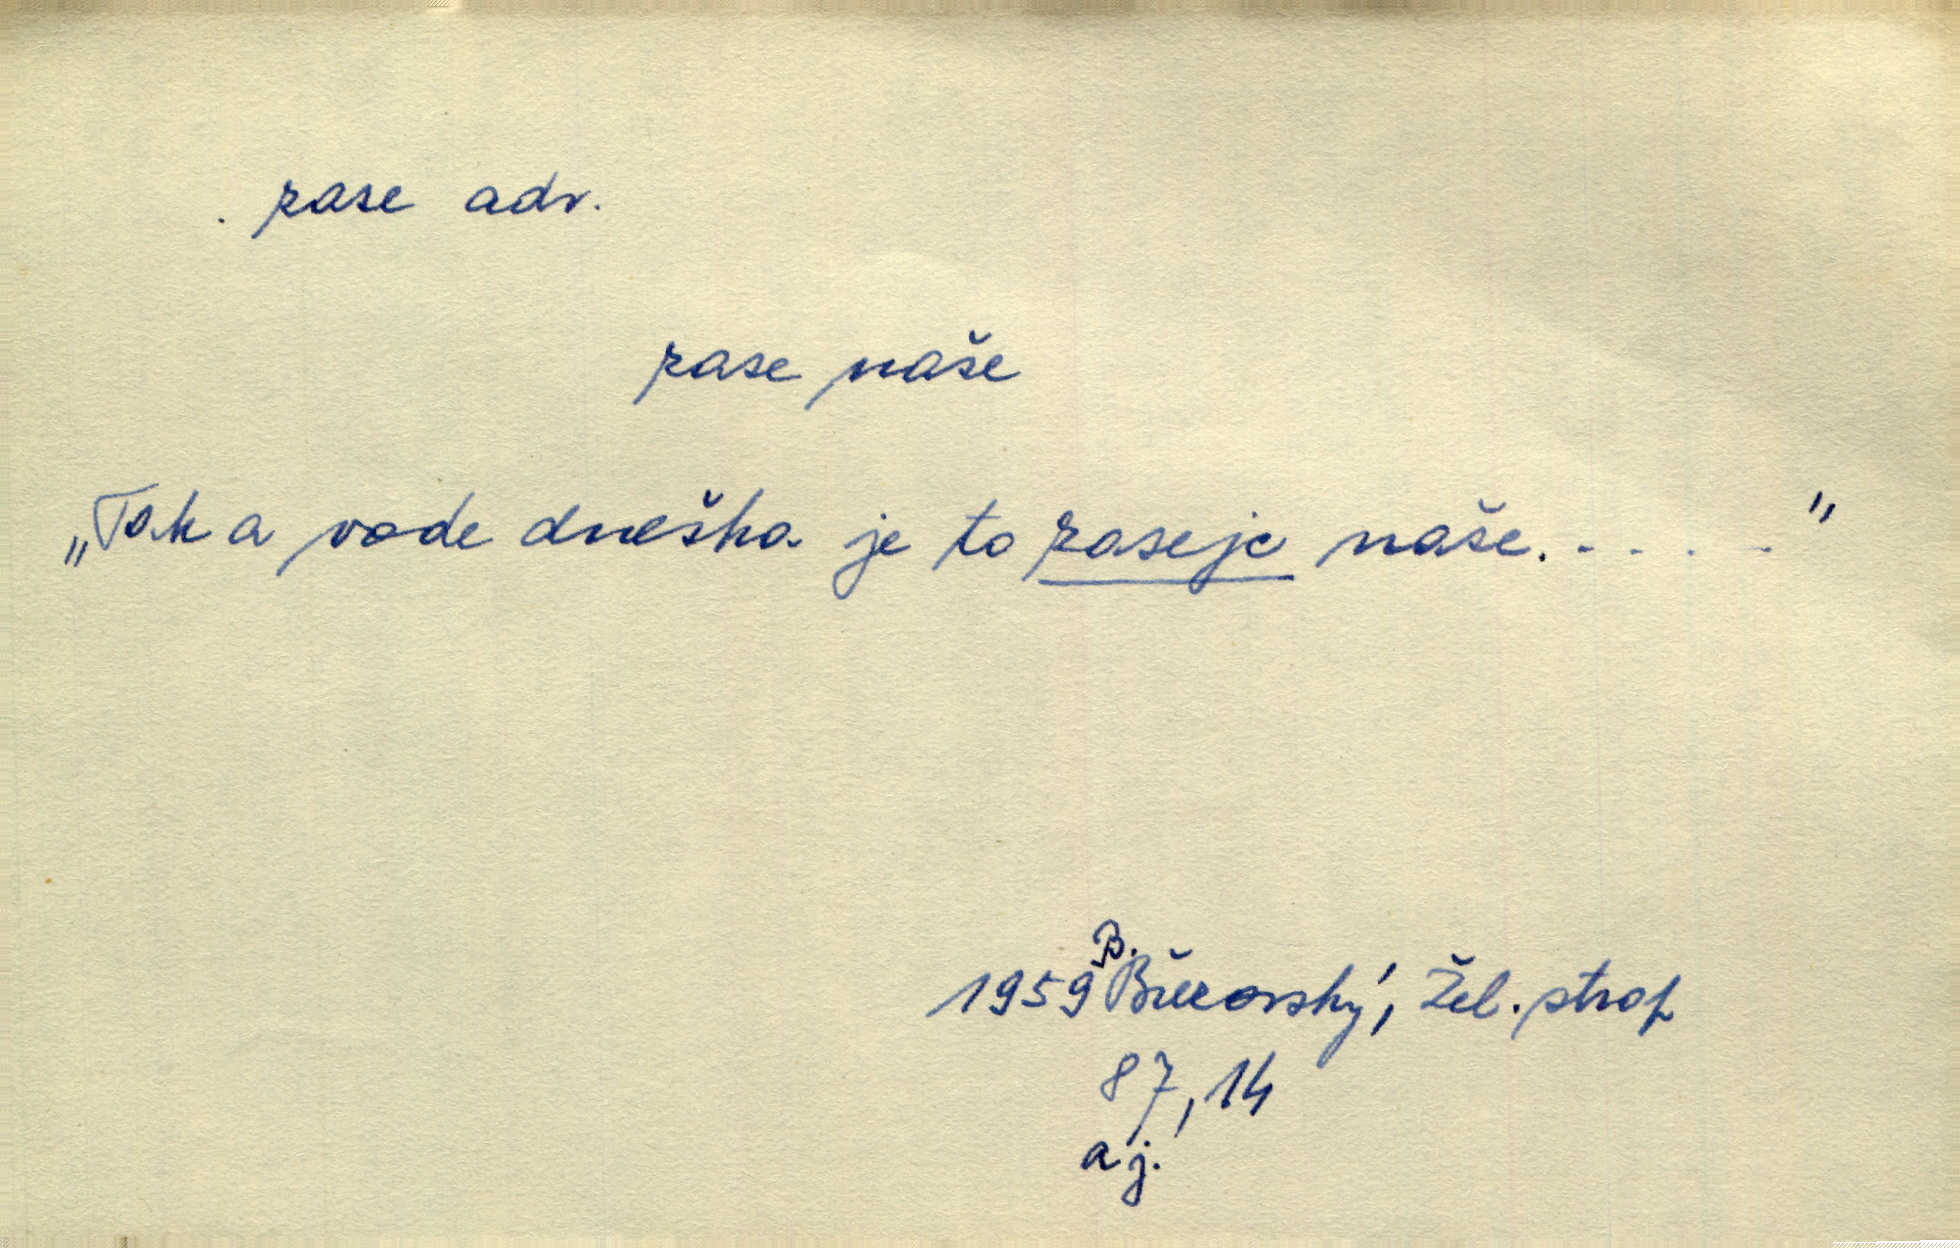 zase adv.
zase naše
„Tak a vode dneška je to zaseje naše. . . . . "
1959 B. Březovský, Žel. strop
87, 14
a j.